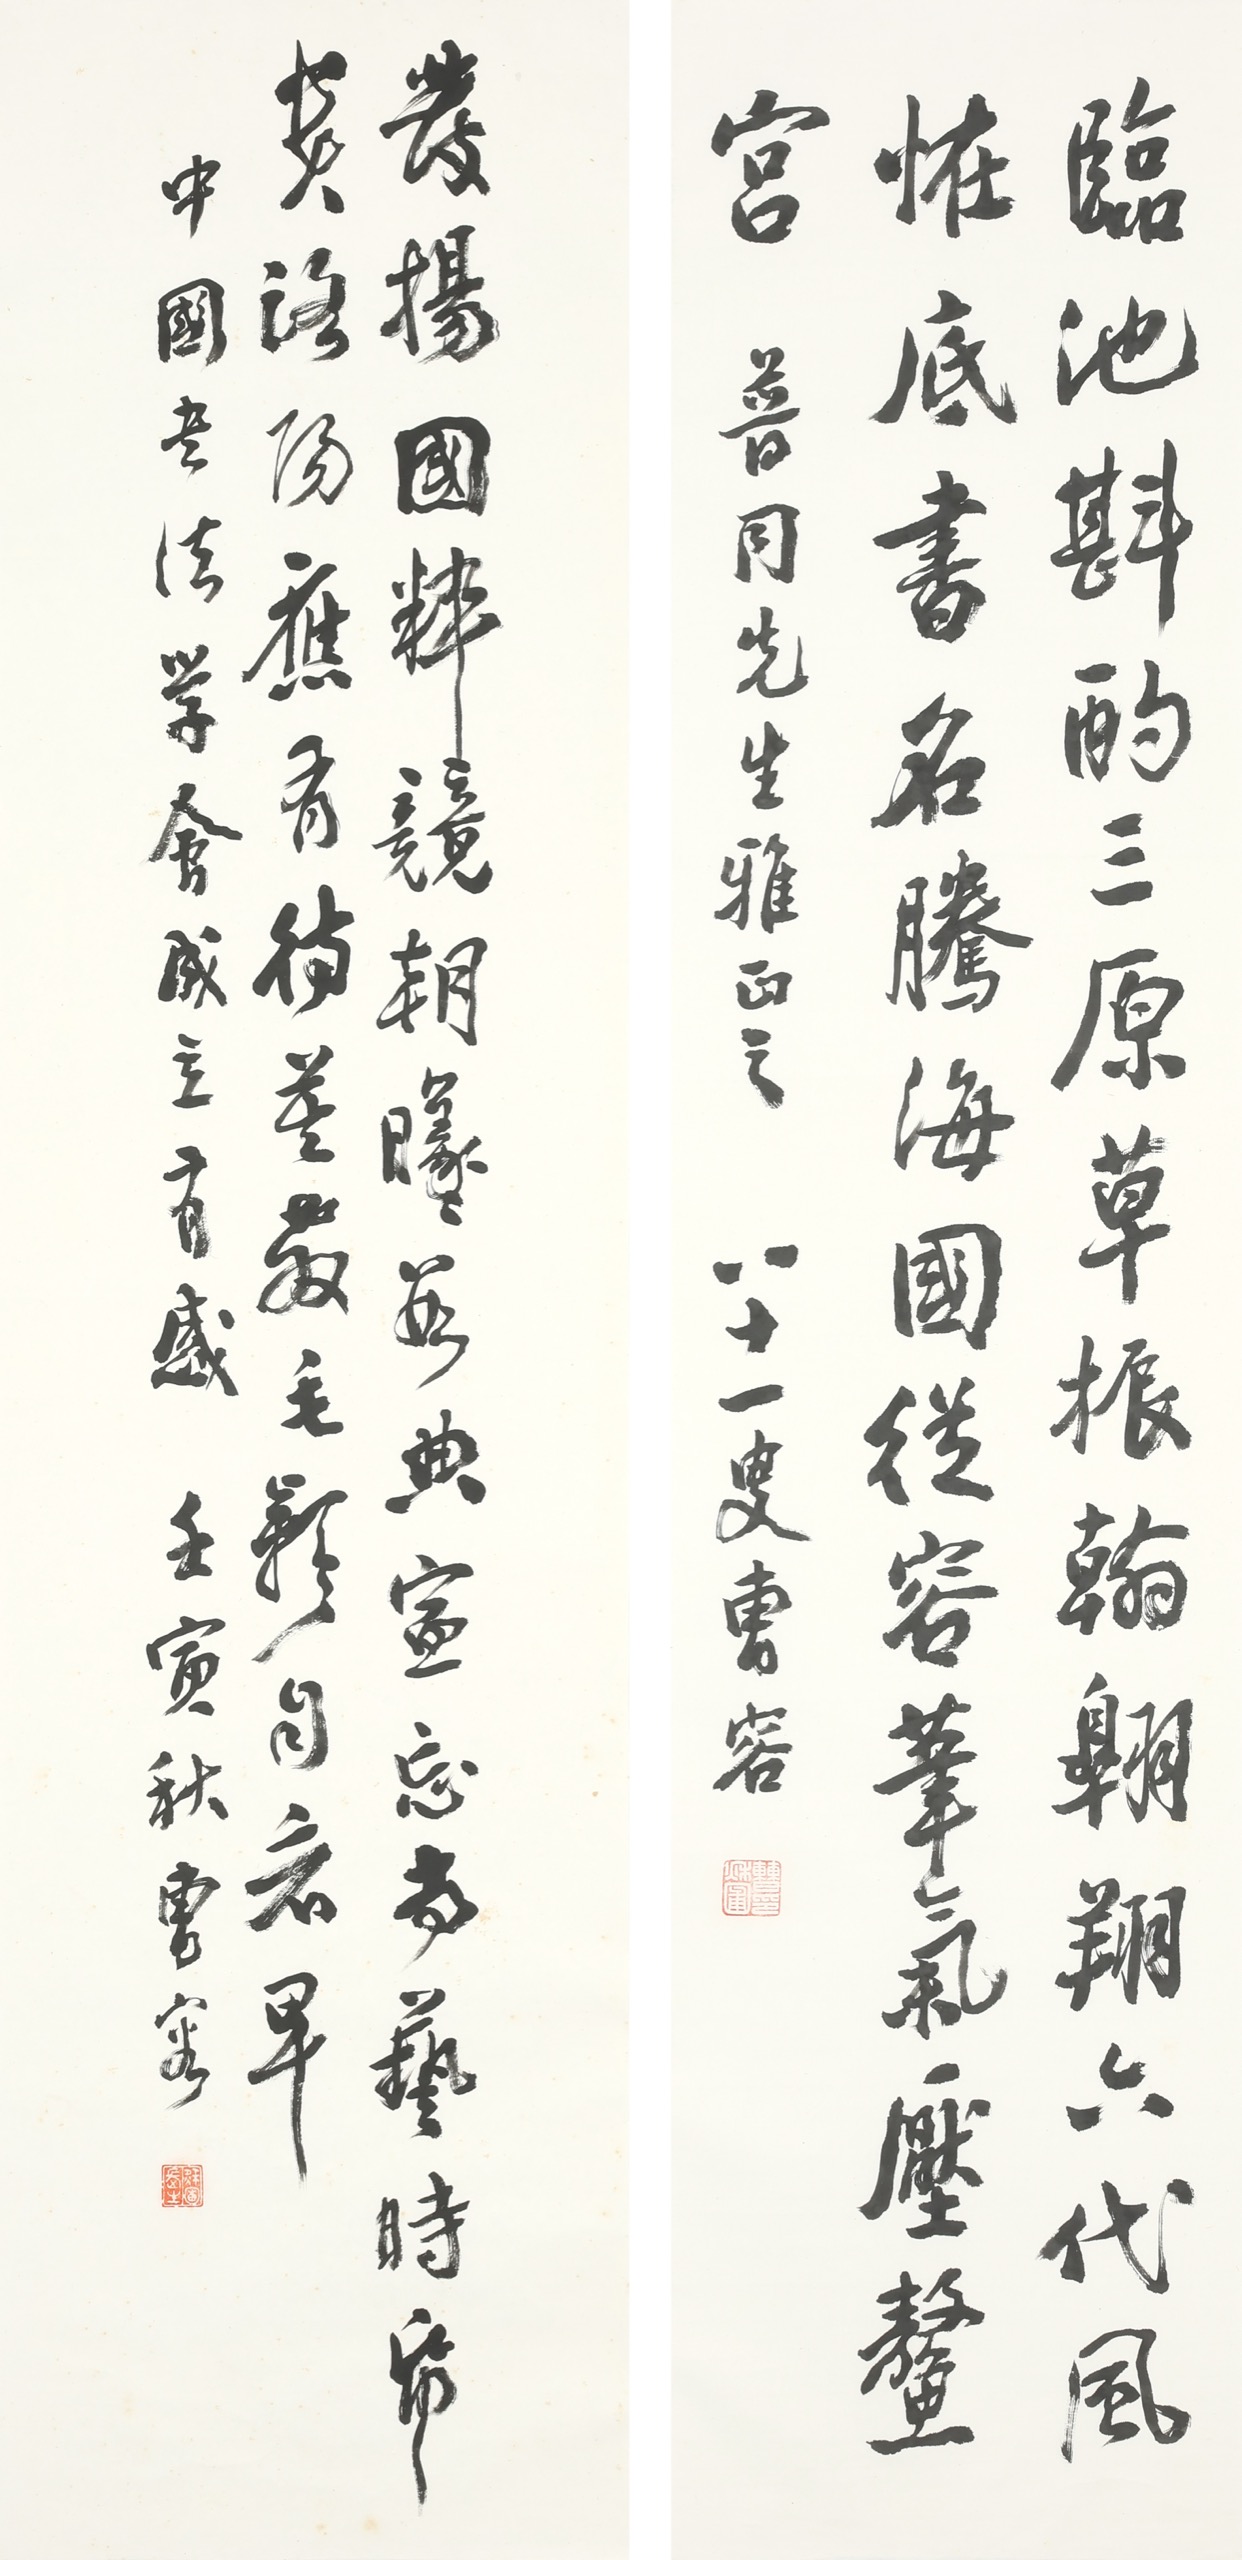 臨池斟酌三原草振翰翱翔六代風
恠底書名騰海國從容筆氣壓鼇
宮 普同先生雅正之 八十一叟曹容
發揚國粹競朝曦數典寧忘尚藝時紙
貴洛陽應有待莫教毛穎自卑
中國書法學會成立有感 壬寅秋曹容